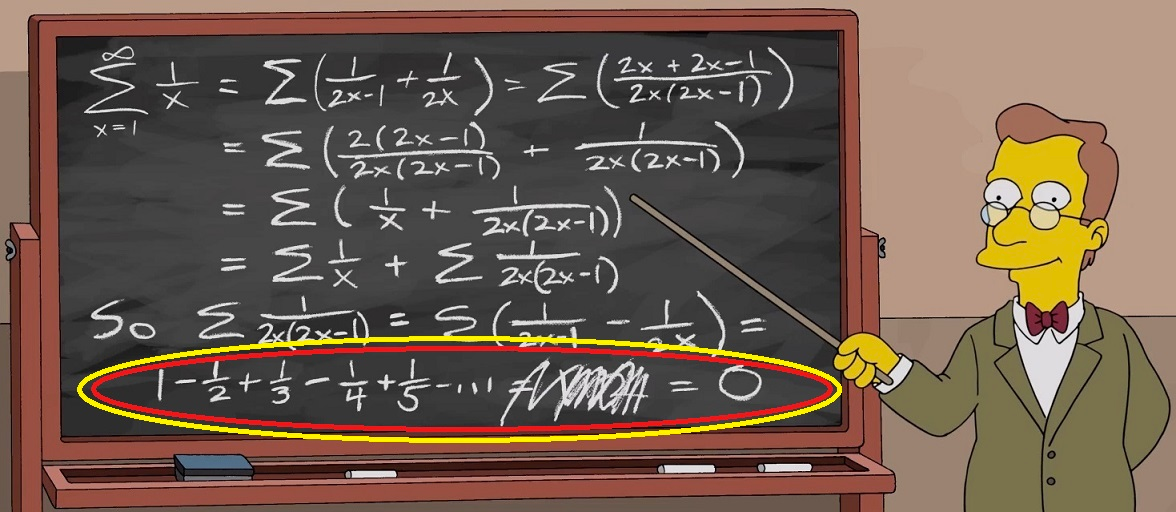 ∞∑x=1 1/x = ∑(1/2x-1 + 1/2x) = ∑(2x + 2x-1/2x(2x-1))
= ∑(2(2x-1)/2x(2x-1) + 1/2x(2x-1))
= ∑(1/x + 1/2x(2x-1))
= ∑1/x + ∑1/2x(2x-1)
So ∑1/2x(2x-1) = ∑(1/2x-1 - 1/2x) =
1 - 1/2 + 1/3 - 1/4 + 1/5 - ... = 0